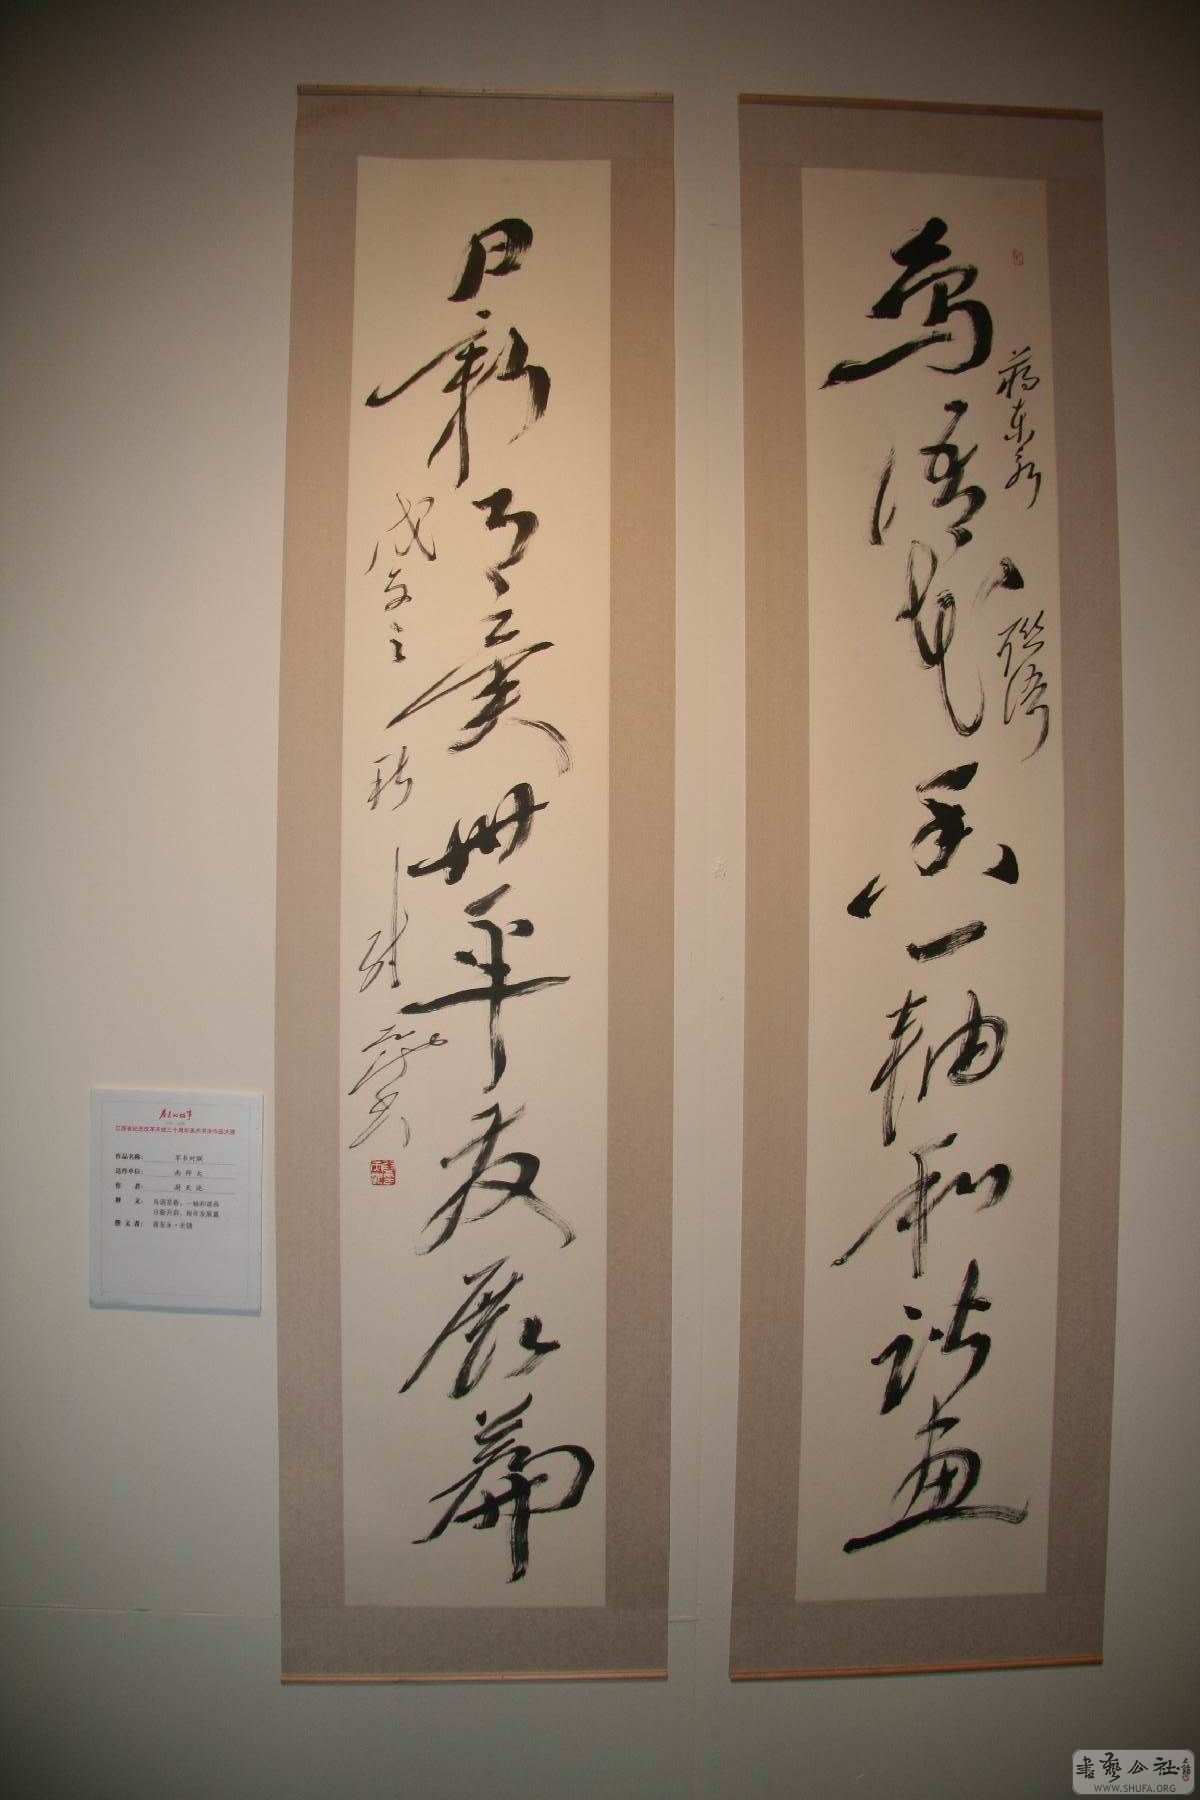 鸟语花香一轴和谐画
蒋东永
联语
日新月异卅年发展篇
戊子之秋
尉天池书
江苏省纪念改革开放三十周年美术书法作品大展
作品名称： 草书对联
送件单位： 南师大
作 者： 尉天池
释 文： 鸟语花香，一轴和谐画
日新月异，卅年发展篇
撰文者： 蒋东永·无锡
書藝公社
WWW.SHUFA.ORG